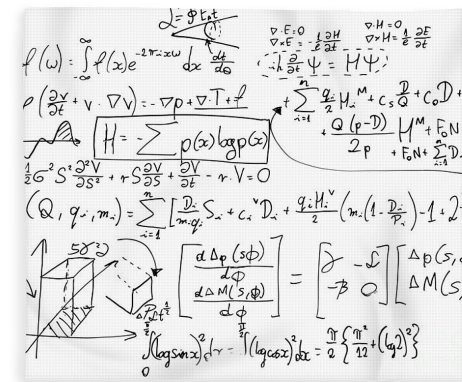 ∇·E=0 ∇·H=0
∇×E = -1/c ∂H/∂t ∇×H = 1/c ∂E/∂t
f(ω) = ∫_{-∞}^{∞} f(x)e^{-2πixω} dx
dt/dQ
i ∂/∂t Ψ = HΨ
ρ(∂v/∂t + v·∇v) = -∇p + ∇·T + f
+ Σ_{i=1}^{n} q_i/2 H_i^M + c_s D/Q + c_o D +
H = -Σ p(x) log p(x)
+ Q(p-D)/2p H^M + F_o N
+ F_o N + Σ_{i=1}^{n} D
1/2 σ² S² ∂²V/∂S² + r S ∂V/∂S + ∂V/∂t - r·V = 0
(Q, q_i, m_i) = Σ_{i=1}^{n} [D_i/(m_i q_i) S_i + c_i^v D_i + q_i H_i^v/2 (m_i(1 - D_i/P_i) - 1 + 2
[d Δp(s,ϕ)/dϕ
d ΔM(s,ϕ)/dϕ] = [-β 0] [Δp(s,
ΔM(s,
∫_0^{π/2} (log sin x)² dx = ∫ (log cos x)² dx = π/2 {π²/12 + (log 2)²}